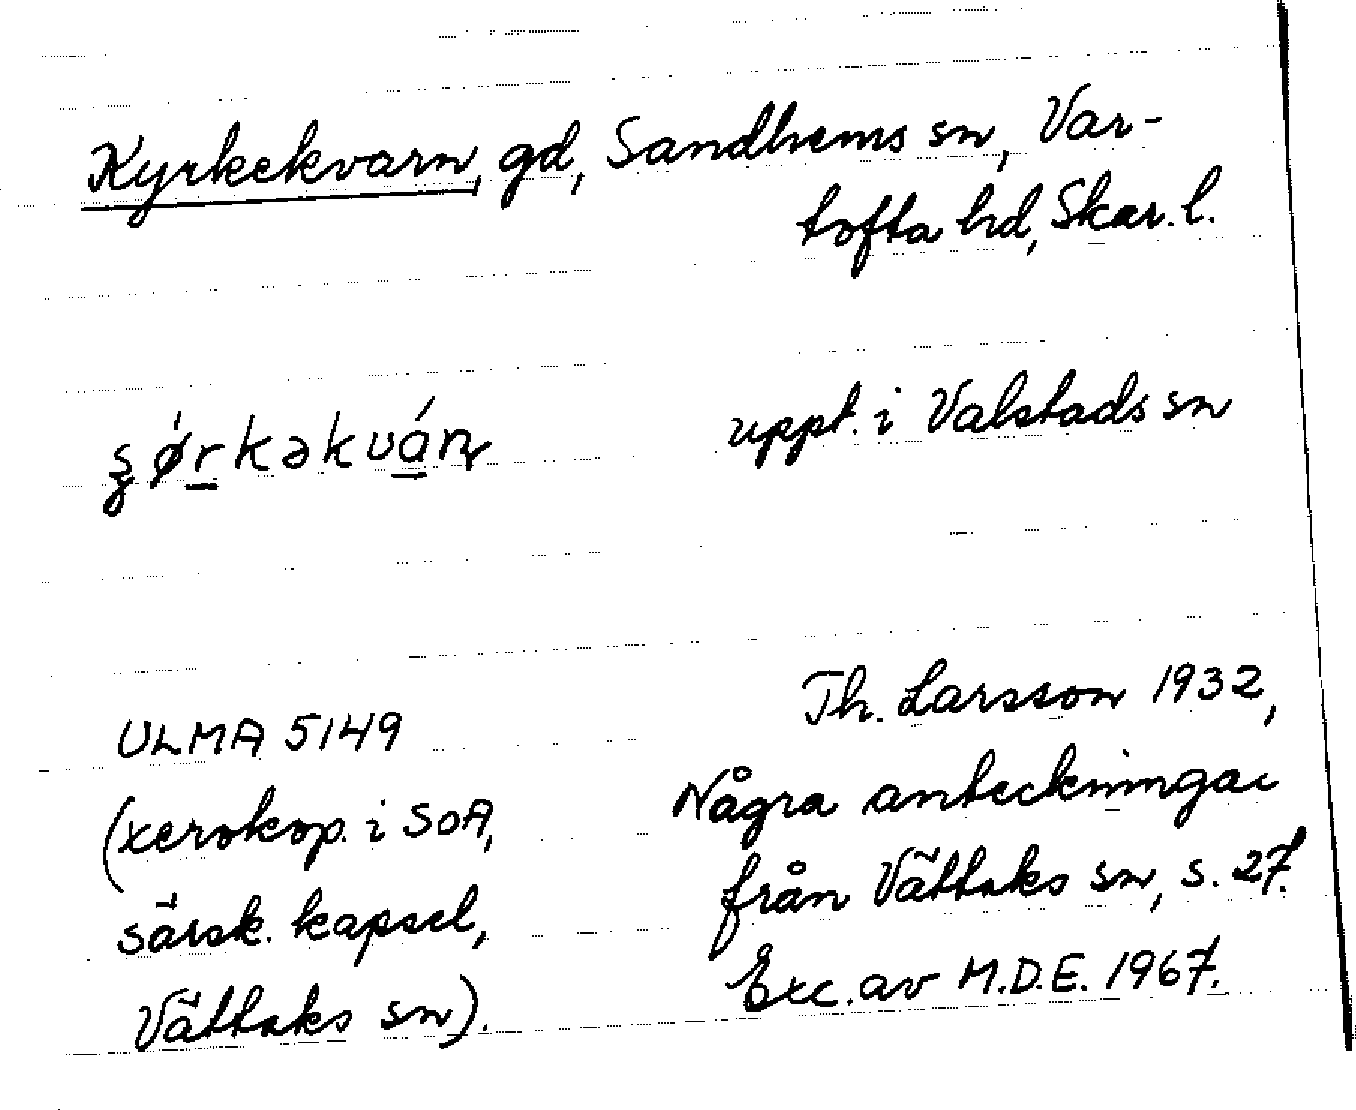 Kyrkekvarn, gd, Sandhems sn, Var-
tofta hd, Skar. l.
uppt. i Valstads sn
ULMA 5149
(xerokop. i SOA,
särsk. kapsel,
Vättaks sn).
Th. Larsson 1932,
Några anteckningar
från Vättaks sn, s. 27.
Exc. av M.D.E. 1967.